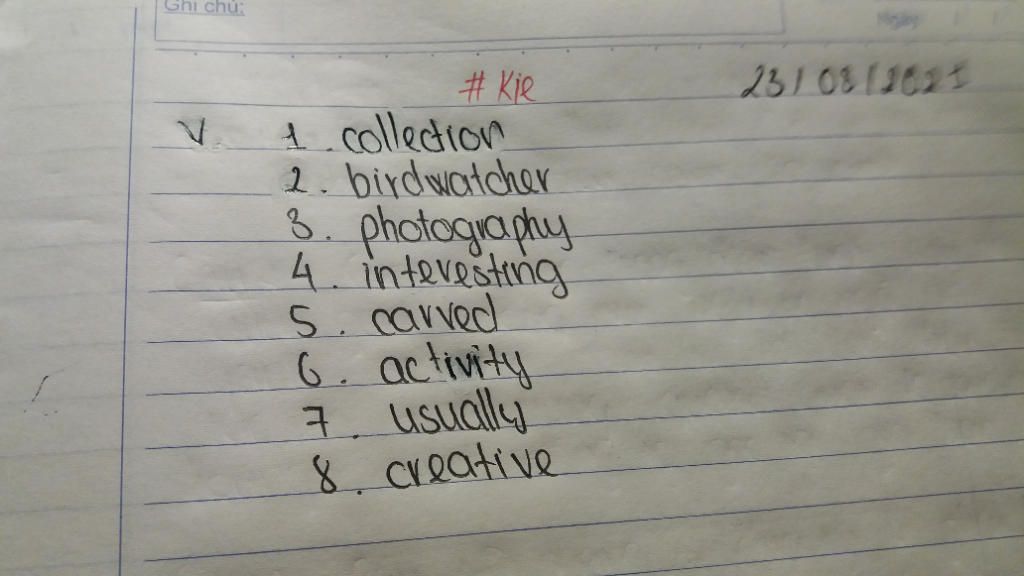 Ghi chú:
Ngày
# Kie 23/08/2021
V. 1. collection
2. birdwatcher
3. photography
4. interesting
5. carved
6. activity
7. usually
8. creative